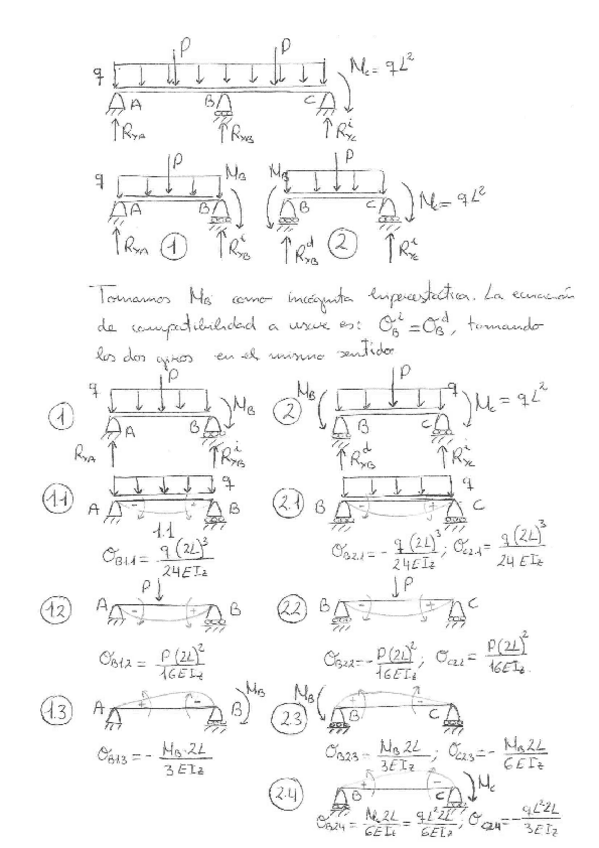 P P
q M_c = qL²
A B C
R_yA R_yB R_yC^i
P P
q M_B M_B M_c = qL²
A B B C
R_yA 1 R_yB^i R_yB^d 2 R_yC^i
Tomamos M_B como incógnita hiperestática. La ecuación
de compatibilidad a usar es: θ_B^i = θ_B^d, tomando
los dos giros en el mismo sentido
P M_B P q
1 M_B 2 M_c = qL²
A B B C
R_yA R_yB^i R_yB^d R_yC^i
q q
1.1 A - + B 2.1 B - + C
1.1
θ_B1.1 = q(2L)³/24EI_z θ_B2.1 = - q(2L)³/24EI_z ; θ_C2.1 = q(2L)³/24EI_z
P P
1.2 A - + B 2.2 B - + C
θ_B1.2 = P(2L)²/16EI_z θ_B2.2 = - P(2L)²/16EI_z ; θ_C2.2 = P(2L)²/16EI_z
M_B M_B
1.3 A + - B 2.3 B + - C
θ_B1.3 = - M_B·2L/3EI_z θ_B2.3 = M_B 2L/3EI_z ; θ_C2.3 = - M_B 2L/6EI_z
2.4 B + - C M_c
θ_B2.4 = M_c 2L/6EI_z = qL² 2L/6EI_z ; θ_C2.4 = - qL² 2L/3EI_z